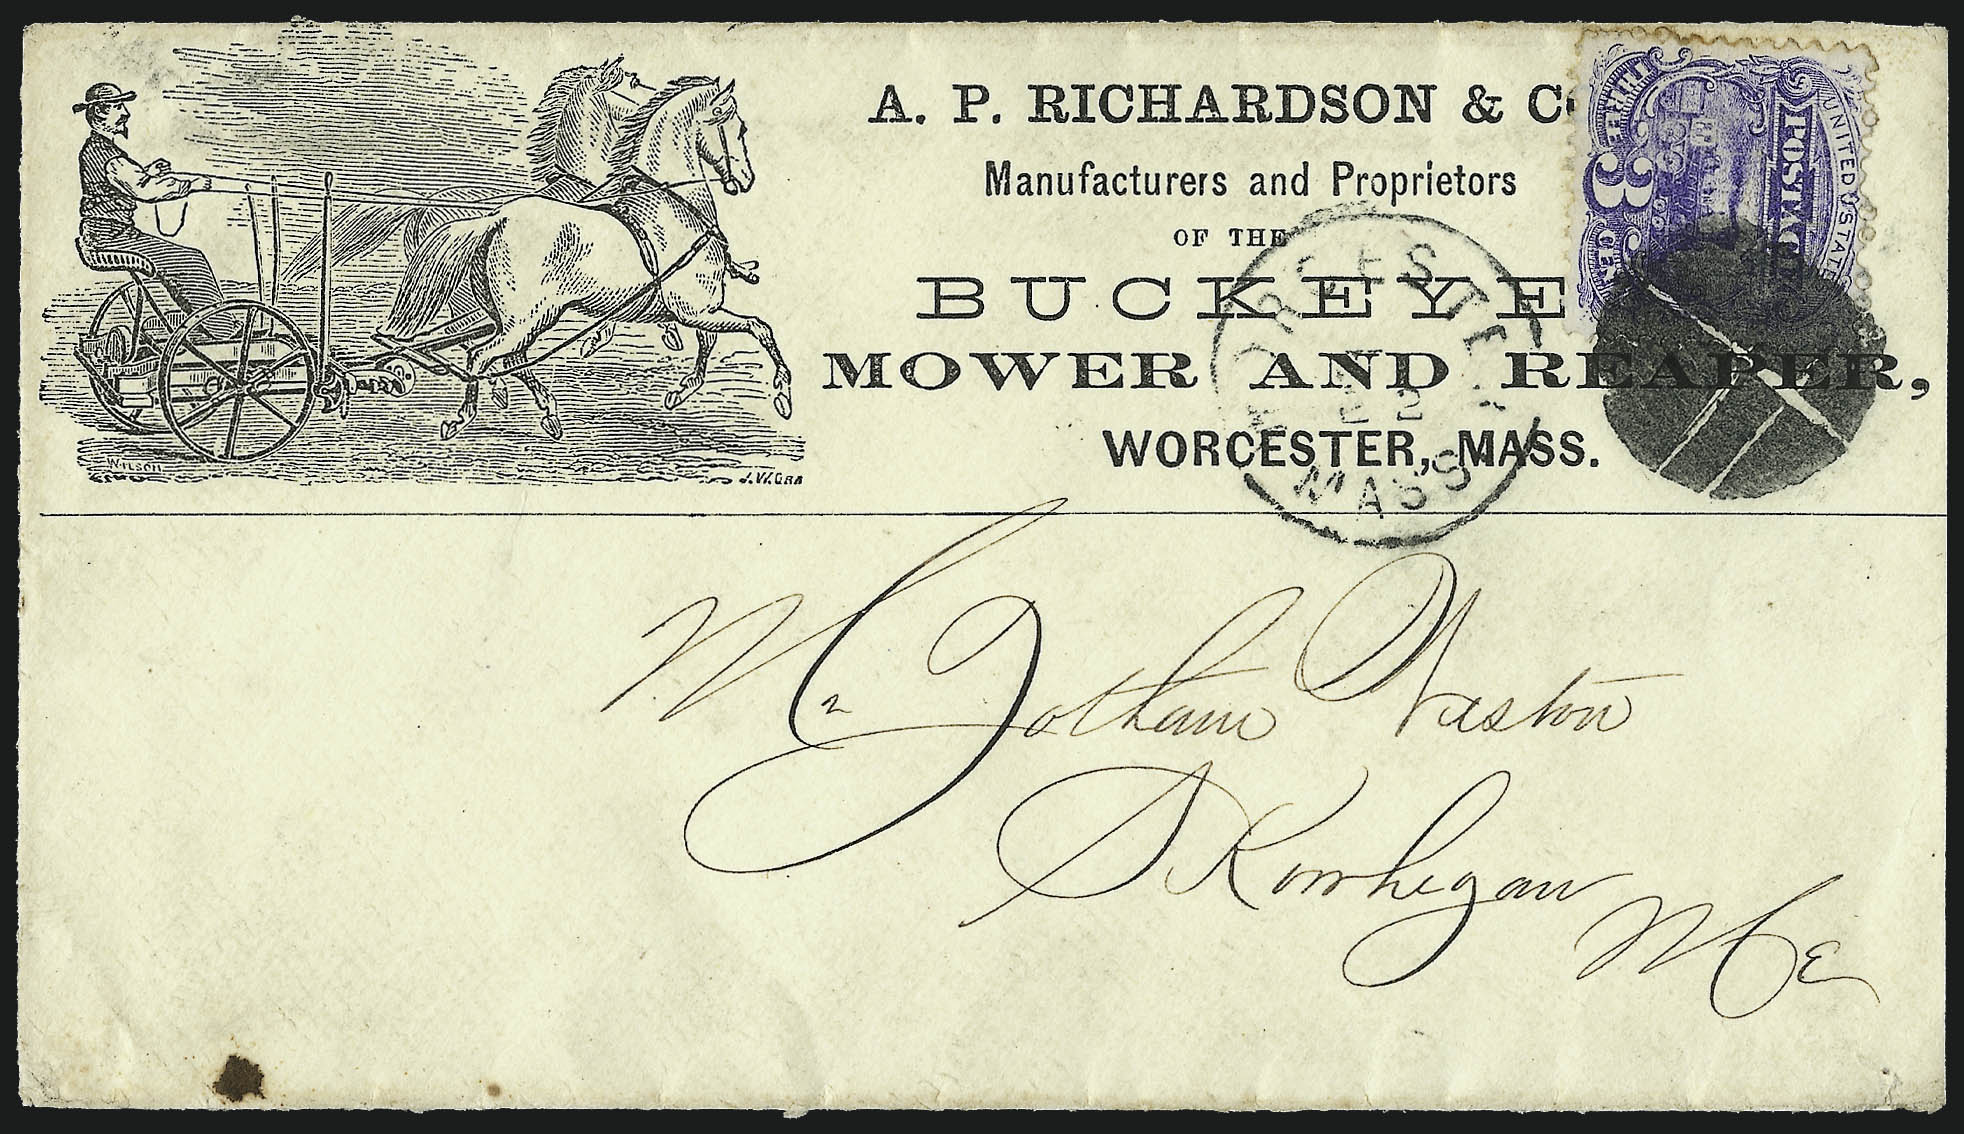 A. P. RICHARDSON & C
Manufacturers and Proprietors
OF THE
BUCKEYE
MOWER AND REAPER,
WORCESTER, MASS.
UNITED STATE
POSTAGE
3
CE
WORCESTER
2
MASS
Wilson
J.W.ORR
Mr Jotham Weston
Skowhegan
Me